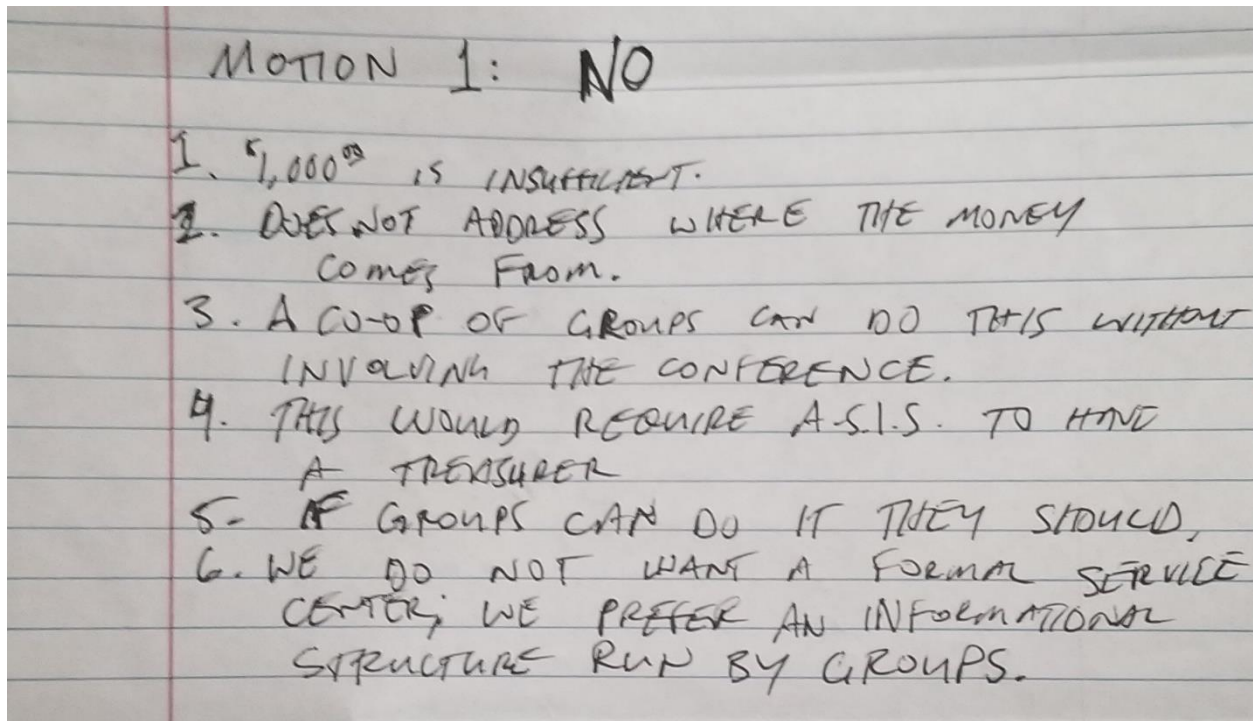 MOTION 1: NO
1. $1,000.00 IS INSUFFICIENT.
2. DOES NOT ADDRESS WHERE THE MONEY
COMES FROM.
3. A CO-OP OF GROUPS CAN DO THIS WITHOUT
INVOLVING THE CONFERENCE.
4. THIS WOULD REQUIRE A.S.I.S. TO HAVE
A TREASURER
5- IF GROUPS CAN DO IT THEY SHOULD.
6. WE DO NOT WANT A FORMAL SERVICE
CENTER; WE PREFER AN INFORMATIONAL
STRUCTURE RUN BY GROUPS.